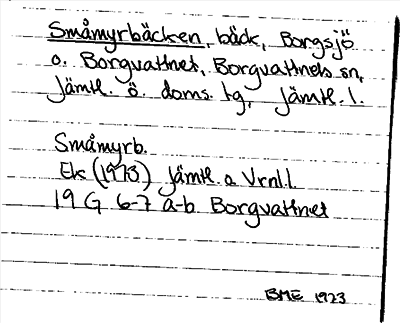 Småmyrbäcken, bäck, Borgsjö
o. Borgvattnet, Borgvattnets sn,
Jämtl. ö. doms. tg, Jämtl. l.
Småmyrb.
Ek (1973) Jämtl. o Vrnl.l.
19 G 6-7 a-b Borgvattnet
BME 1923